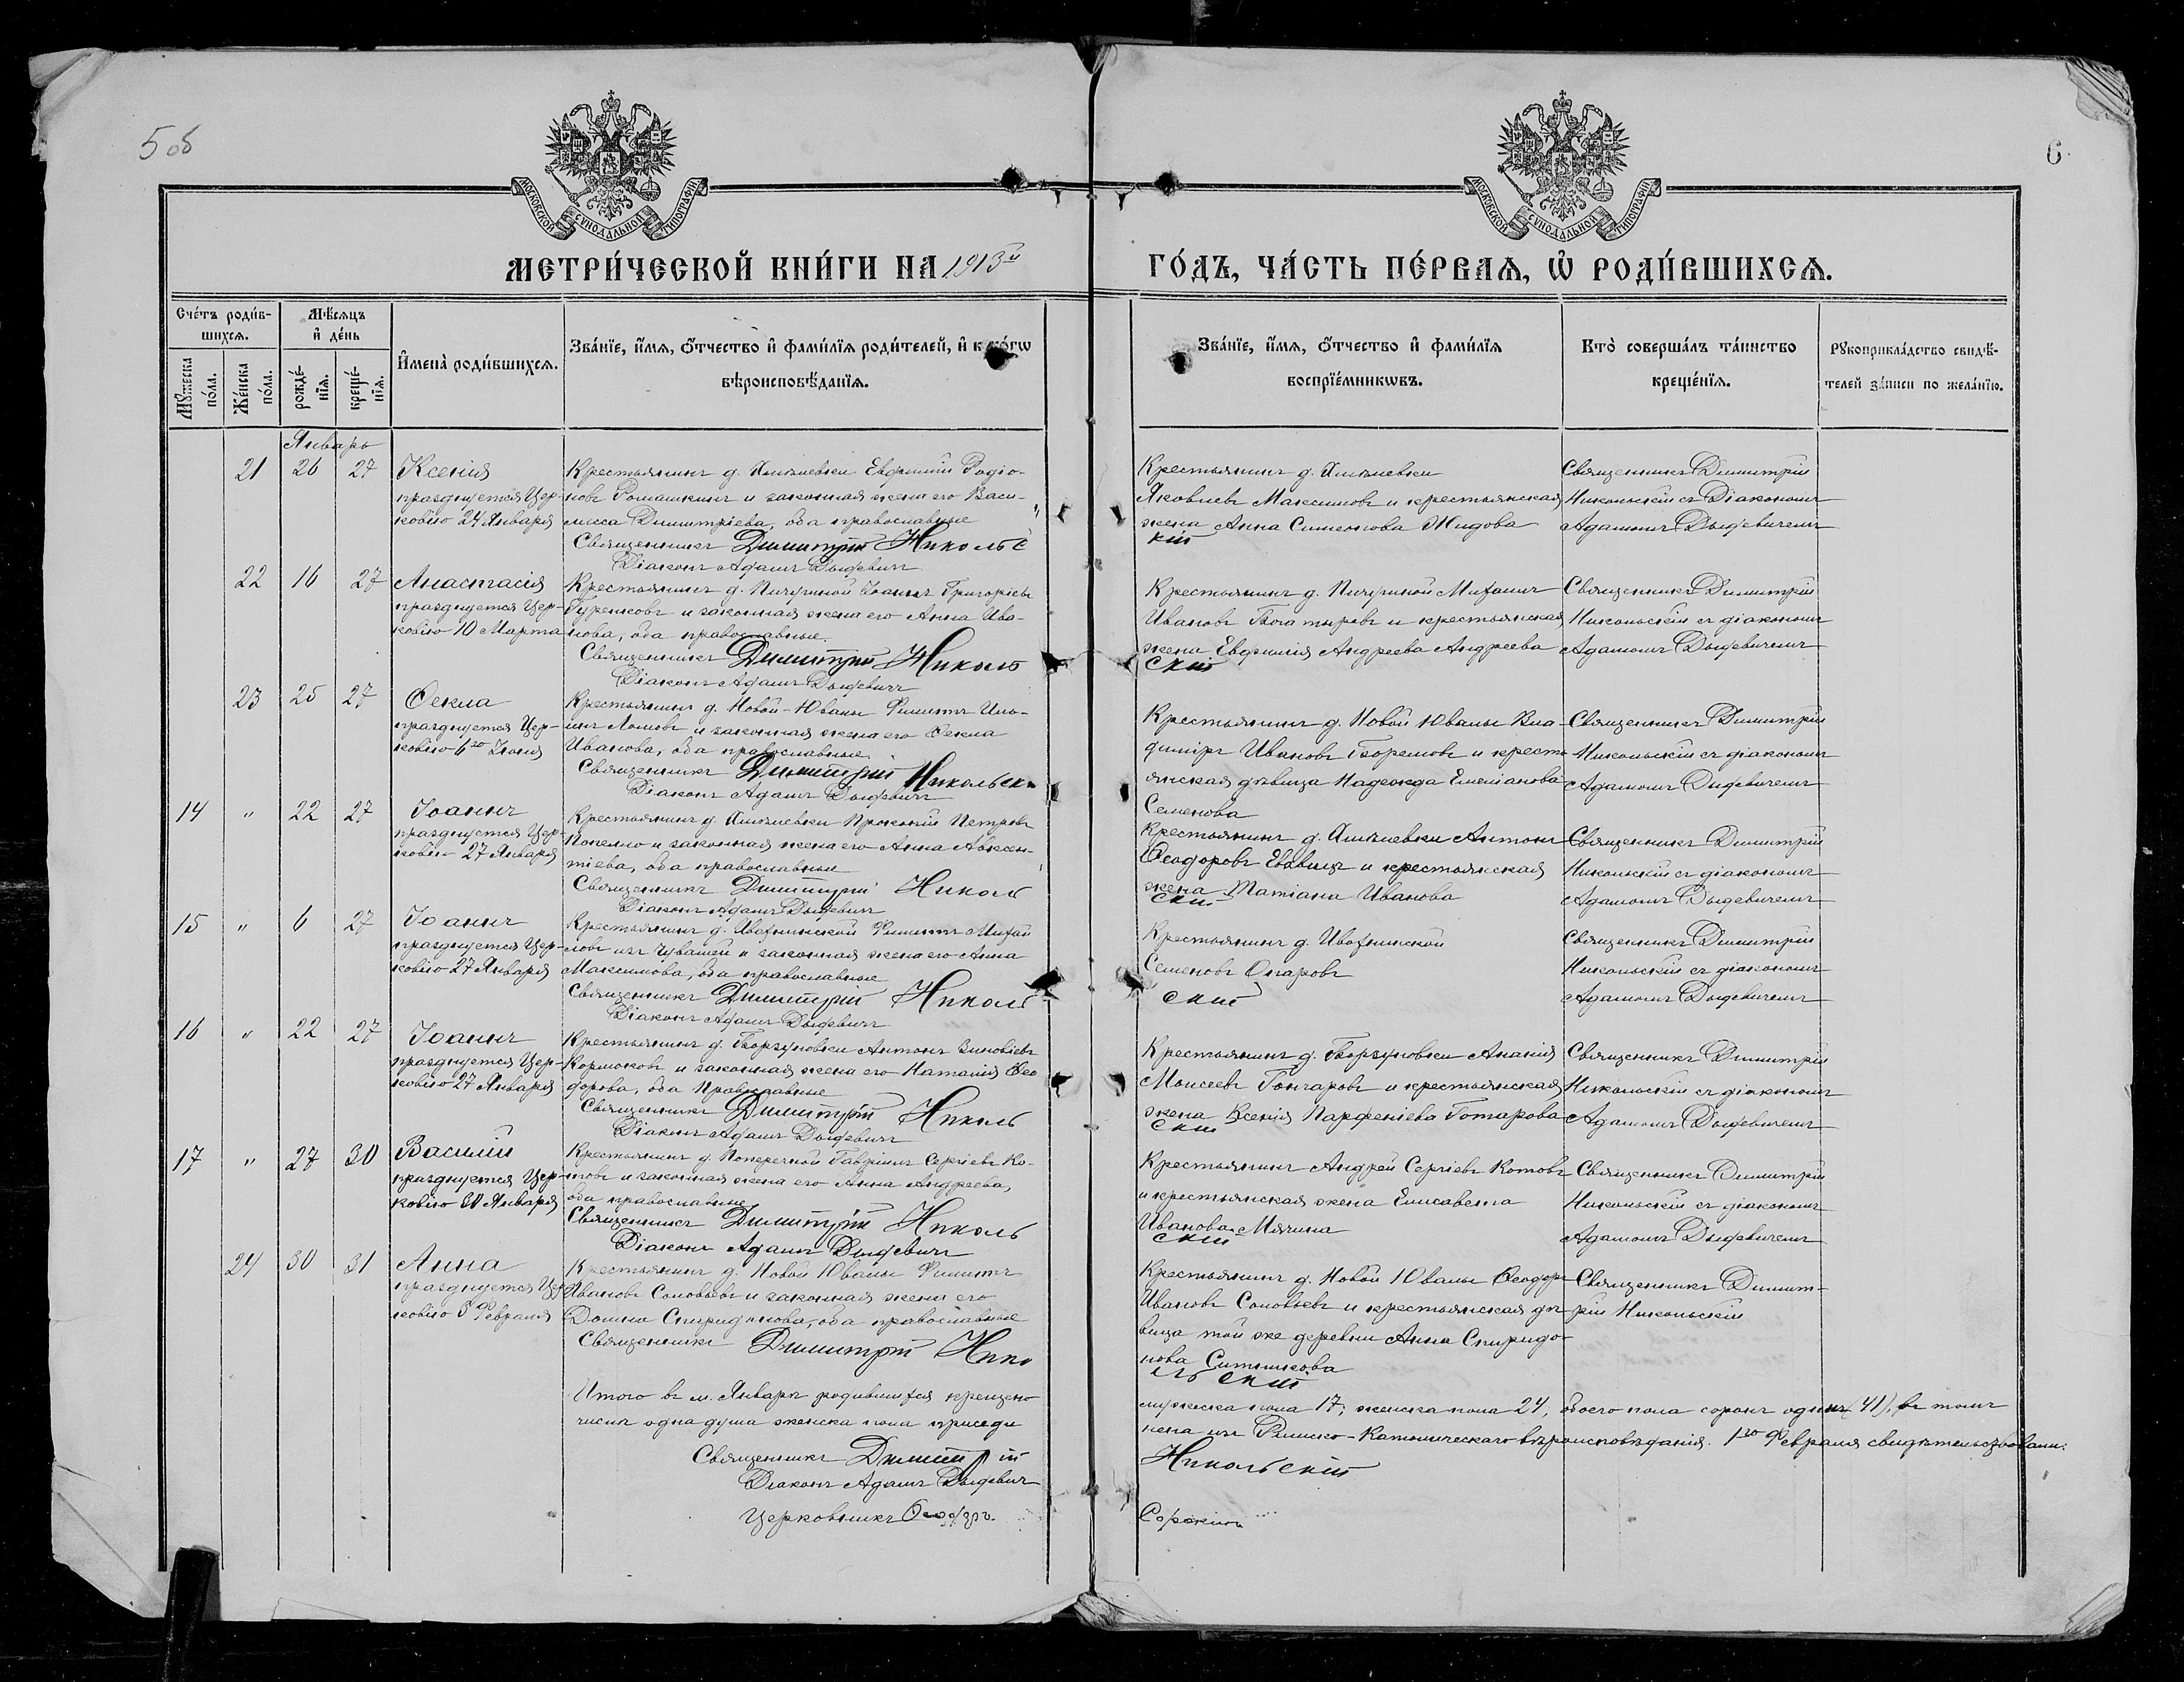 5 об
6
МОСКОВСКОЙ СѴНОДАЛЬНОЙ ТИПОГРАФІИ
МОСКОВСКОЙ СѴНОДАЛЬНОЙ ТИПОГРАФІИ
МЕТРИ́ЧЕСКОЙ КНИ́ГИ НА 1913й
ГО́ДЪ, ЧА́СТЬ ПЕ́РВАѦ, Ѡ҆ РОДИ́ВШИХСѦ.
Сче́тъ роди́в-
шихсѧ.
Мꙋ́жеска по́ла.
Же́нска по́ла.
Мѣ́сѧцъ
и҆ де́нь
рожде́-нїѧ.
креще́-нїѧ.
И҆мена̀ роди́вшихсѧ.
Зва́нїе, и҆́мѧ, ѻ҆́тчество и҆ фами́лїѧ роди́телей, и҆ како́гѡ
вѣроисповѣ́данїѧ.
Зва́нїе, и҆́мѧ, ѻ҆́тчество и҆ фами́лїѧ
воспрїе́мникѡвъ.
Кто̀ соверша́лъ та́инство
креще́нїѧ.
Рꙋкоприкла́дство свидѣ́-
телей за́писи по жела́нїю.
Январь
21 26 27 Ксенія
празднуется Цер-
ковію 24 Января
Крестьянинъ д. Евфимій Родіо-
новъ Ромашкинъ и законная жена его Васи-
лисса Димитріева, оба православные
Священникъ Димитрій Николь
Діаконъ Адамъ Дыдевичъ
Крестьянинъ д.
Яковлевъ Максимовъ и крестьянская
жена Анна Симеонова Жидова
скій
Священникъ Димитрій
Никольскій съ Діакономъ
Адамомъ Дыдевичемъ
22 16 27 Анастасія
празднуется Цер-
ковію 10 Марта
Крестьянинъ д. Пичугиной Іоаннъ Григорьевъ
Гуренковъ и законная жена его Анна Ива-
нова, оба православные.
Священникъ Димитрій Николь
Діаконъ Адамъ Дыдевичъ
Крестьянинъ д. Пичугиной Михаилъ
Ивановъ Богатыревъ и крестьянская
жена Евфимія Андреева Андреева
скій
Священникъ Димитрій
Никольскій съ діакономъ
Адамомъ Дыдевичемъ
23 25 27 Ѳекла
празднуется Цер-
ковію 6го Іюня
Крестьянинъ д. Новой-Ювалы Филиппъ Иль-
инъ Ломовъ и законная жена его Ѳекла
Иванова, оба православные
Священникъ Димитрій Никольскі
Діаконъ Адамъ Дыдевичъ
Крестьянинъ д. Новой Ювалы Вла-
диміръ Ивановъ и кресть-
янская дѣвица Надежда Емельянова
Семенова
Священникъ Димитрій
Никольскій съ діакономъ
Адамомъ Дыдевичемъ
14 " 22 27 Іоаннъ
празднуется Цер-
ковію 27 Января
Крестьянинъ д. Прокопій Петровъ
и законная жена его Анна Авксен-
тіева, оба православные
Священникъ Димитрій Николь
Діаконъ Адамъ Дыдевичъ
Крестьянинъ д. Антонъ
Ѳеодоровъ и крестьянская
жена Татіана Иванова
скій
Священникъ Димитрій
Никольскій съ діакономъ
Адамомъ Дыдевичемъ
15 " 6 27 Іоаннъ
празднуется Цер-
ковію 27 Января
Крестьянинъ д. Филиппъ Михай-
ловъ изъ Чувашей и законная жена его Анна
Максимова, оба православные
Священникъ Димитрій Николь
Діаконъ Адамъ Дыдевичъ
Крестьянинъ д.
Семеновъ Опаровъ
скій
Священникъ Димитрій
Никольскій съ діакономъ
Адамомъ Дыдевичемъ
16 " 22 27 Іоаннъ
празднуется Цер-
ковію 27 Января
Крестьянинъ д. Борзуновки Антонъ Зиновьевъ
и законная жена его Наталія Ѳео-
дорова, оба Православные
Священникъ Димитрій Николь
Діаконъ Адамъ Дыдевичъ
Крестьянинъ д. Борзуновки Ананія
Моисеевъ Гончаровъ и крестьянская
жена Ксенія Парфеніева
скій
Священникъ Димитрій
Никольскій съ діакономъ
Адамомъ Дыдевичемъ
17 " 27 30 Василій
празднуется Цер-
ковію 30 Января
Крестьянинъ д. Поперечной Гавріилъ Сергіевъ Ко-
товъ и законная жена его Анна Андреева,
оба православные
Священникъ Димитрій Николь
Діаконъ Адамъ Дыдевичъ
Крестьянинъ Андрей Сергіевъ Котовъ
и крестьянская жена Елисавета
Иванова Мячина
скій
Священникъ Димитрій
Никольскій съ діакономъ
Адамомъ Дыдевичемъ
24 30 31 Анна
празднуется Цер-
ковію Февраля
Крестьянинъ д. Новой Ювалы Филиппъ
Ивановъ Соловьевъ и законная жена его
Домна Спиридонова, оба православные
Священникъ Димитрій Нико
Крестьянинъ д. Новой Ювалы Ѳеодоръ
Ивановъ Соловьевъ и крестьянская дѣ-
вица той же деревни Анна Спиридо-
нова Ситникова
льскій
Священникъ Димит-
рій Никольскій
Итого въ м. Январѣ родившихся крещено
мужеска пола 17, женска пола 24, обоего пола сорокъ одинъ (41), въ томъ
числѣ одна душа женска пола присоеди
нена изъ Римско-Католическаго вѣроисповѣданія. 1го Февраля свидѣтельствовали:
Священникъ Димитрій
Никольскій
Діаконъ Адамъ Дыдевичъ
Церковникъ Ѳеодоръ
Сорокинъ